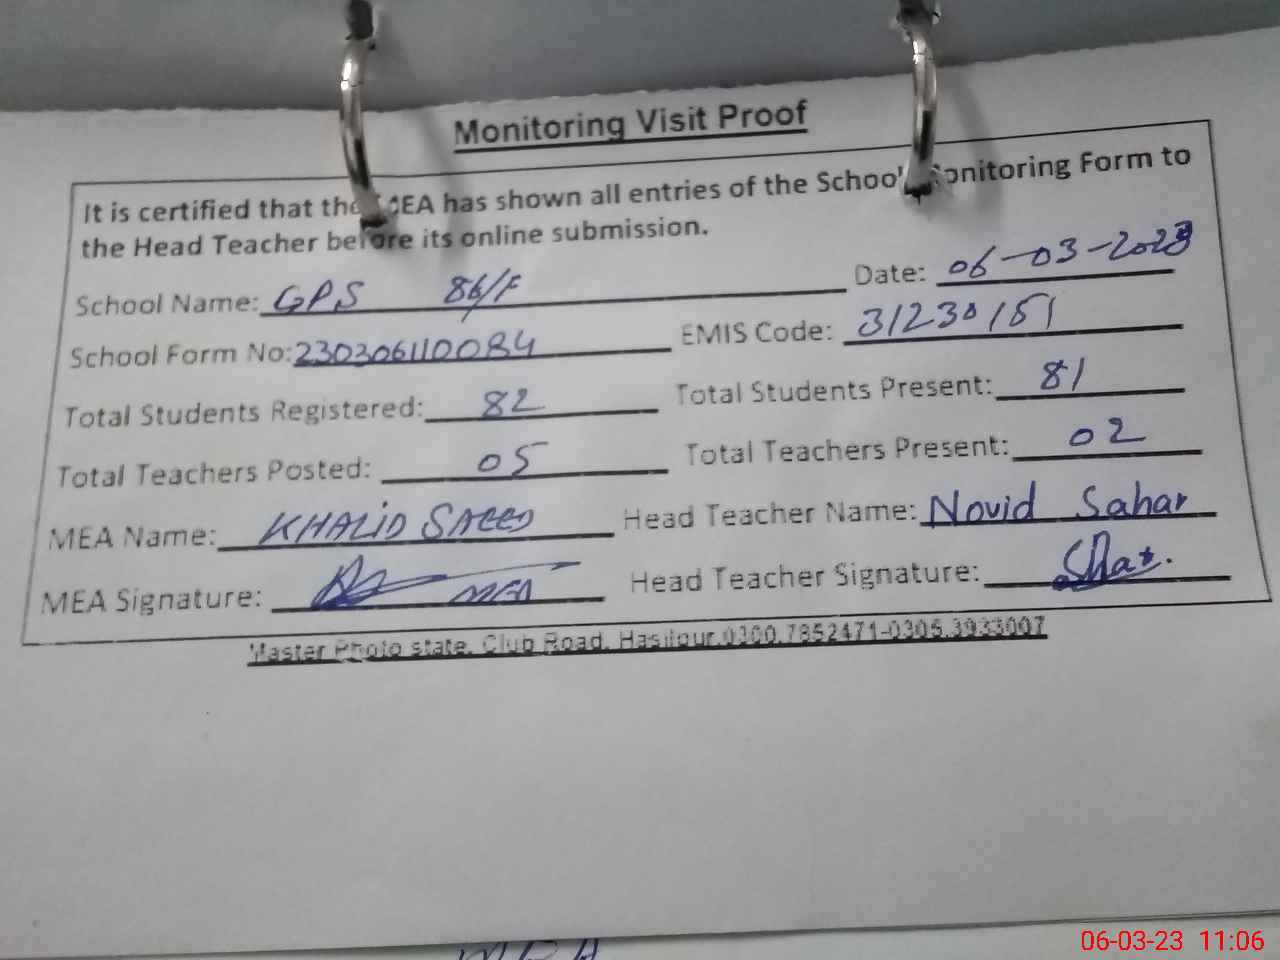 Monitoring Visit Proof
It is certified that the MEA has shown all entries of the School Monitoring Form to
the Head Teacher before its online submission.
School Name: GPS 86/F Date: 06-03-2023
School Form No: 230306110084 EMIS Code: 31230151
Total Students Registered: 82 Total Students Present: 81
Total Teachers Posted: 05 Total Teachers Present: 02
MEA Name: KHALID SAEED Head Teacher Name: Novid Sahar
MEA Signature: MEA Head Teacher Signature:
Master Photo state. Club Road. Hasilpur.0300.7852471-0305.3933007
06-03-23 11:06